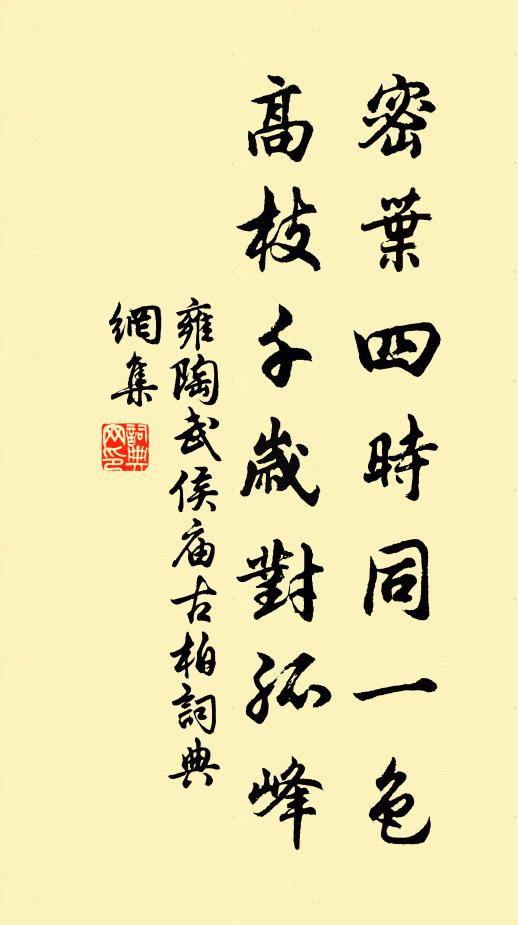 密葉四時同一色
高枝千歲對孤峰
雍陶武侯庙古柏詞典
網集
詞典網印